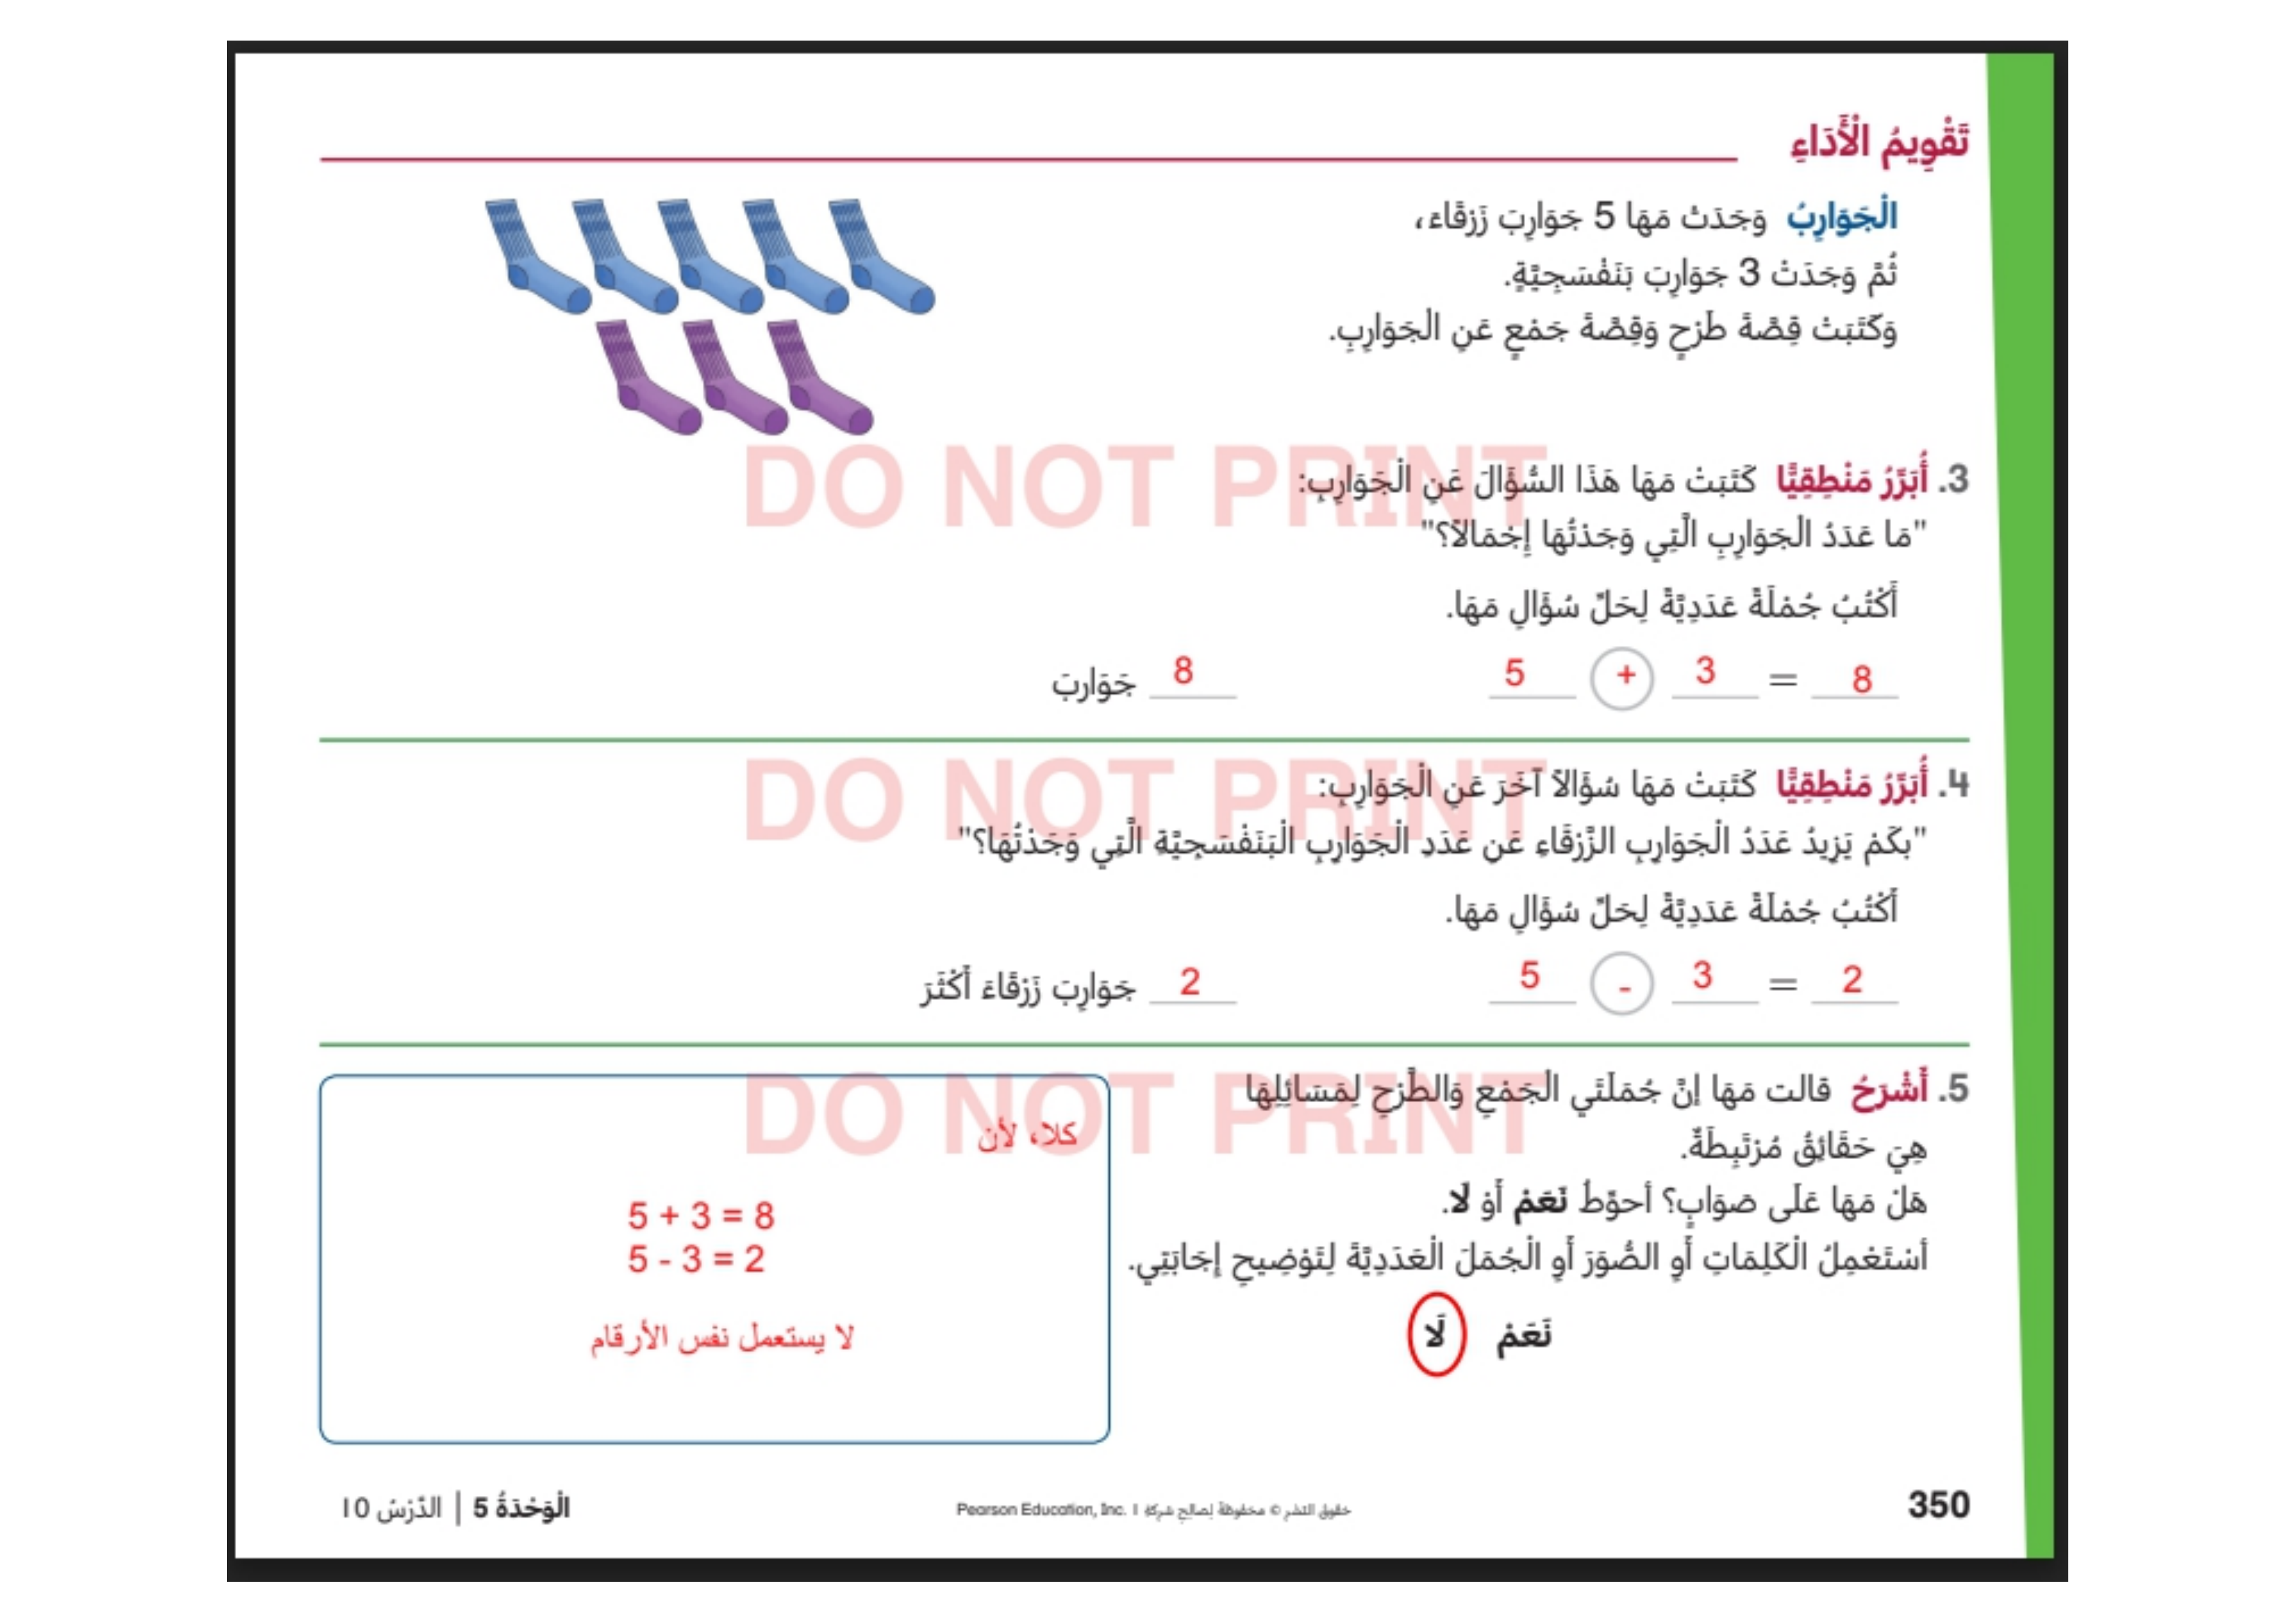 تَقْوِيمُ الْأَدَاءِ
الْجَوَارِبُ وَجَدَتْ مَهَا 5 جَوَارِبَ زَرْقَاءَ،
ثُمَّ وَجَدَتْ 3 جَوَارِبَ بَنَفْسَجِيَّةٍ.
وَكَتَبَتْ قِصَّةَ طَرْحٍ وَقِصَّةَ جَمْعٍ عَنِ الْجَوَارِبِ.
DO NOT PRINT
3. أُبَرِّرُ مَنْطِقِيًّا كَتَبَتْ مَهَا هَذَا السُّؤَالَ عَنِ الْجَوَارِبِ:
"مَا عَدَدُ الْجَوَارِبِ الَّتِي وَجَدْتُهَا إِجْمَالًا؟"
أَكْتُبُ جُمْلَةً عَدَدِيَّةً لِحَلِّ سُؤَالِ مَهَا.
5 + 3 = 8
8 جَوَارِبَ
DO NOT PRINT
4. أُبَرِّرُ مَنْطِقِيًّا كَتَبَتْ مَهَا سُؤَالًا آخَرَ عَنِ الْجَوَارِبِ:
"بِكَمْ يَزِيدُ عَدَدُ الْجَوَارِبِ الزَّرْقَاءِ عَنِ عَدَدِ الْجَوَارِبِ الْبَنَفْسَجِيَّةِ الَّتِي وَجَدْتُهَا؟"
أَكْتُبُ جُمْلَةً عَدَدِيَّةً لِحَلِّ سُؤَالِ مَهَا.
5 - 3 = 2
2 جَوَارِبَ زَرْقَاءَ أَكْثَرَ
DO NOT PRINT
5. أَشْرَحُ قالت مَهَا إِنَّ جُمْلَتَيِ الْجَمْعِ وَالطَّرْحِ لِمَسَائِلِهَا
هِيَ حَقَائِقُ مُرْتَبِطَةٌ.
هَلْ مَهَا عَلَى صَوَابٍ؟ أحوِّطُ نَعَمْ أَوْ لَا.
أَسْتَعْمِلُ الْكَلِمَاتِ أَوِ الصُّوَرَ أَوِ الْجُمَلَ الْعَدَدِيَّةَ لِتَوْضِيحِ إِجَابَتِي.
نَعَمْ لَا
كلا، لأن
5 + 3 = 8
5 - 3 = 2
لا يستعمل نفس الأرقام
350
حقوق النشر © محفوظة لصالح شركة Pearson Education, Inc. 1
الْوَحْدَةُ 5 | الدَّرْسُ 10